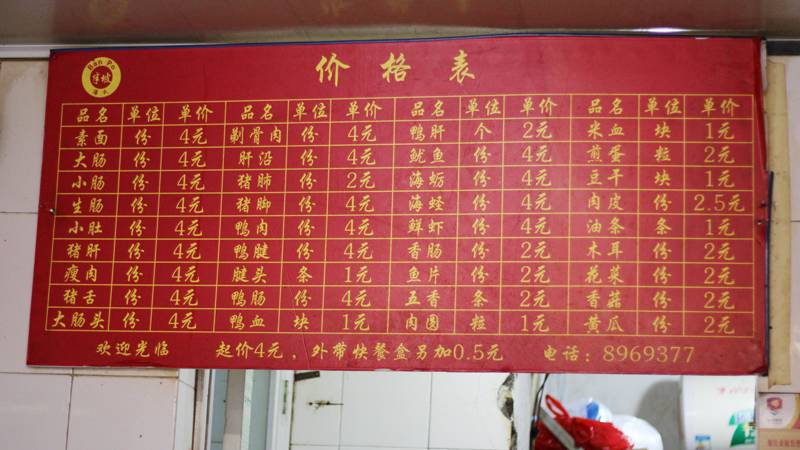 Ban Po
半坡
价格表
品名 单位 单价 品名 单位 单价 品名 单位 单价 品名 单位 单价
素面 份 4元 剔骨肉 份 4元 鸭肝 个 2元 米血 块 1元
大肠 份 4元 肝沿 份 4元 鱿鱼 份 4元 煎蛋 粒 2元
小肠 份 4元 猪肺 份 2元 海蛎 份 4元 豆干 块 1元
生肠 份 4元 猪脚 份 4元 海蛏 份 4元 肉皮 份 2.5元
小肚 份 4元 鸭肉 份 4元 鲜虾 份 4元 油条 条 1元
猪肝 份 4元 鸭腱 份 4元 香肠 份 2元 木耳 份 2元
瘦肉 份 4元 腱头 条 1元 鱼片 份 2元 花菜 份 2元
猪舌 份 4元 鸭肠 份 4元 五香 条 2元 香菇 份 2元
大肠头 份 4元 鸭血 块 1元 肉圆 粒 1元 黄瓜 份 2元
欢迎光临 起价4元，外带快餐盒另加0.5元 电话：8969377